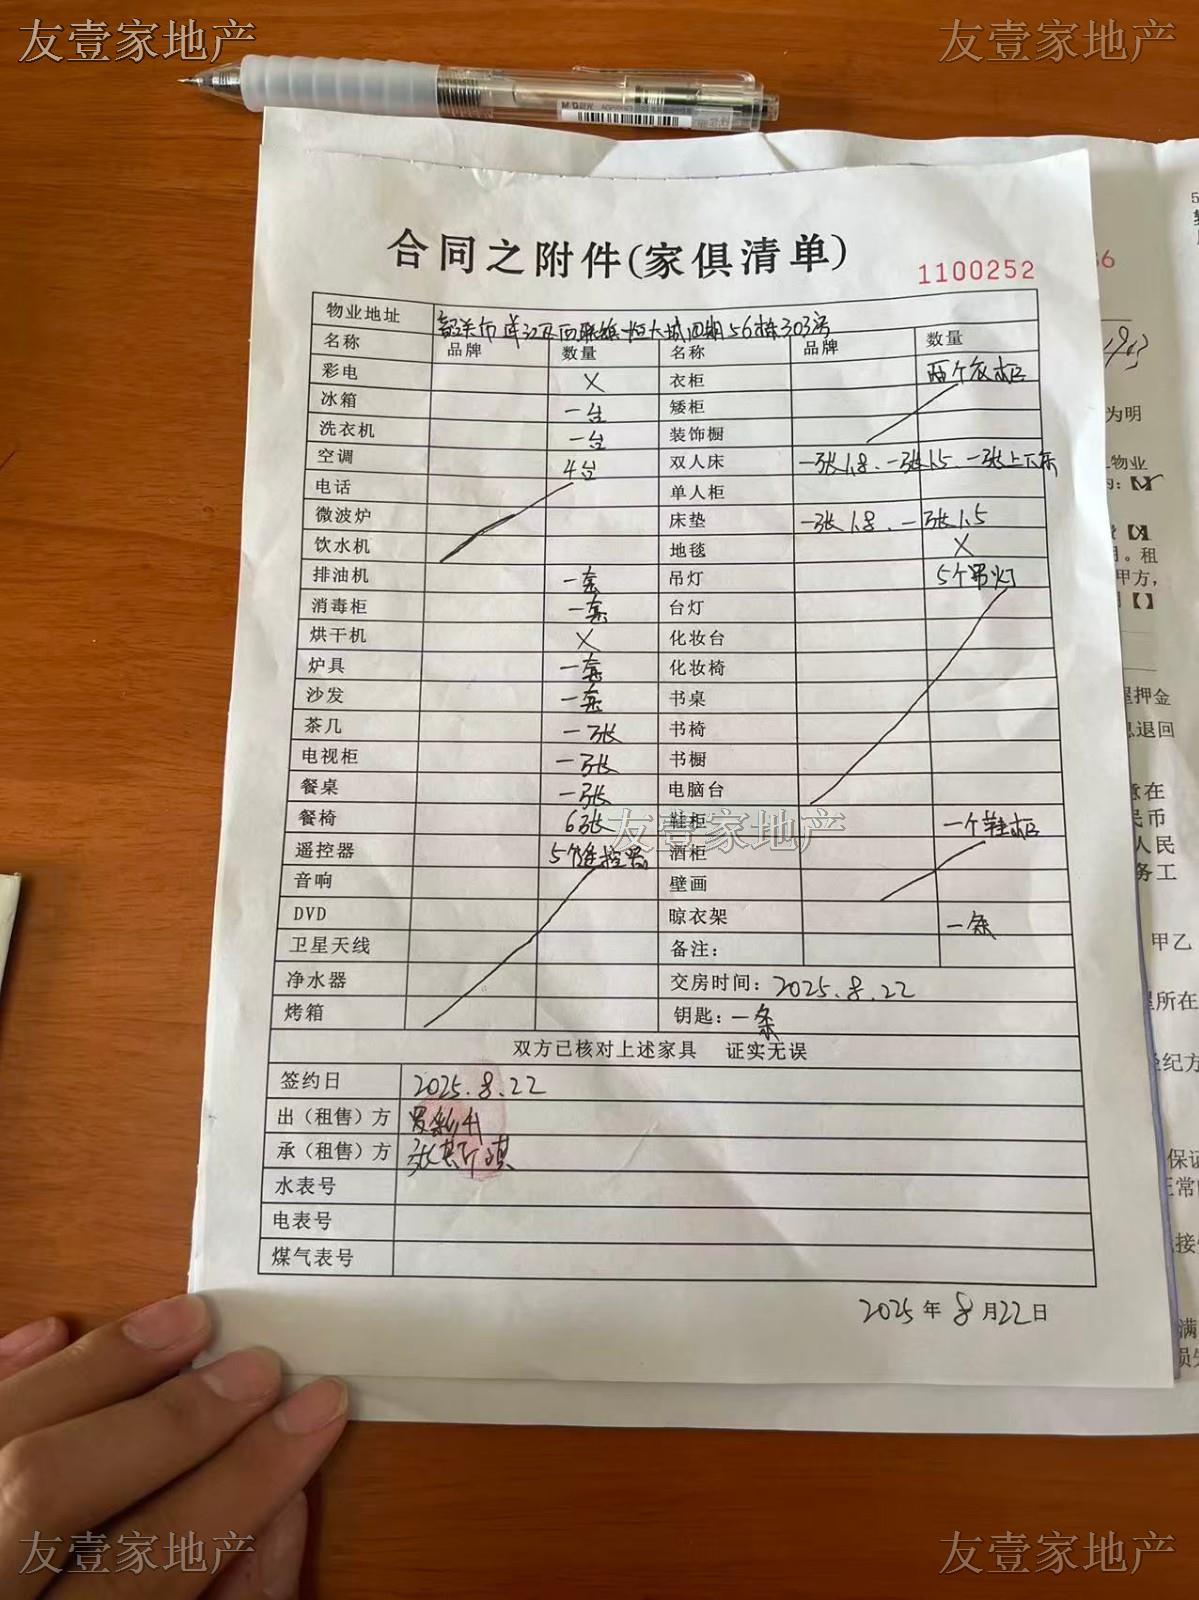 友壹家地产 友壹家地产
M&G晨光
合同之附件(家俱清单)
1100252
物业地址 韶关市浈江区西联镇恒大城四期56栋303号
名称 品牌 数量 名称 品牌 数量
彩电 X 衣柜 两个衣柜
冰箱 一台 矮柜
洗衣机 一台 装饰橱
空调 4台 双人床 一张1.8、一张1.5、一张上下床
电话 单人柜
微波炉 床垫 一张1.8、一张1.5
饮水机 地毯 X
排油机 一套 吊灯 5个吊灯
消毒柜 一套 台灯
烘干机 X 化妆台
炉具 一套 化妆椅
沙发 一套 书桌
茶几 一张 书椅
电视柜 一张 书橱
餐桌 一张 电脑台
餐椅 6张 鞋柜 一个鞋柜
友壹家地产
遥控器 5个遥控器 酒柜
音响 壁画
DVD 晾衣架 一条
卫星天线 备注:
净水器 交房时间: 2025.8.22
烤箱 钥匙: 一条
双方已核对上述家具 证实无误
签约日 2025.8.22
出（租售）方
承（租售）方
水表号
电表号
煤气表号
2025年8月22日
为明
物业
【】
。租
甲方,
【 】
屋押金
息退回
意在
民币
人民
务工
甲乙
所在
经纪方
保证
正常
接
满
损失
友壹家地产 友壹家地产